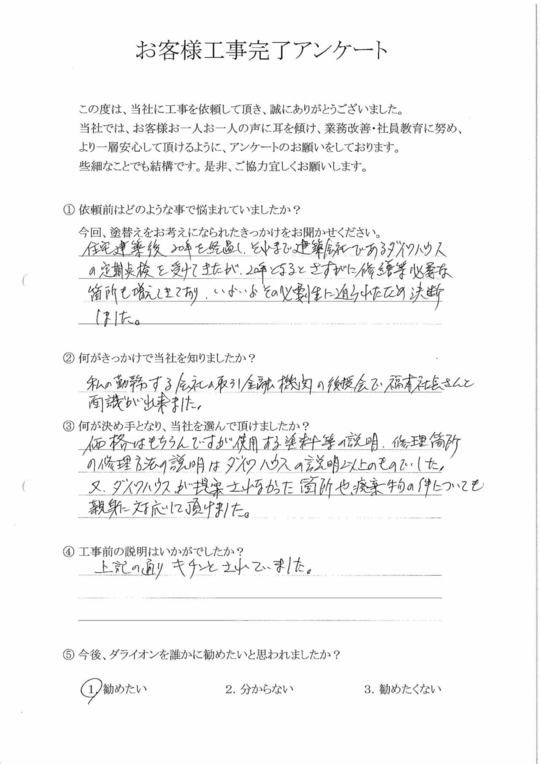 お客様工事完了アンケート
この度は、当社に工事を依頼して頂き、誠にありがとうございました。
当社では、お客様お一人お一人の声に耳を傾け、業務改善・社員教育に努め、
より一層安心して頂けるように、アンケートのお願いをしております。
些細なことでも結構です。是非、ご協力宜しくお願いします。
① 依頼前はどのような事で悩まれていましたか？
今回、塗替えをお考えになられたきっかけをお聞かせください。
住宅建築後20年を経過し、それまで建築会社であるダイワハウス
の定期点検を受けてきたが、20年となるとさすがに修繕等必要な
箇所も増えてきており、いよいよその必要性に迫られたため決断
しました。
② 何がきっかけで当社を知りましたか？
私の勤務する会社の取引金融機関の後援会で福森社長さんと
面識が出来ました。
③ 何が決め手となり、当社を選んで頂けましたか？
価格はもちろんですが使用する塗料等の説明、修理箇所
の修理方法の説明はダイワハウスの説明以上のものでした。
又、ダイワハウスが提案されなかった箇所や廃棄物の件についても
親身に対応して頂けました。
④ 工事前の説明はいかがでしたか？
上記の通りキチンとされていました。
⑤ 今後、ダライオンを誰かに勧めたいと思われましたか？
1. 勧めたい 2. 分からない 3. 勧めたくない